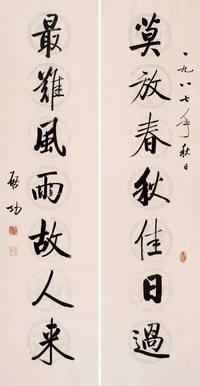 一九八七年秋日
莫放春秋佳日過
最難風雨故人来
啓功